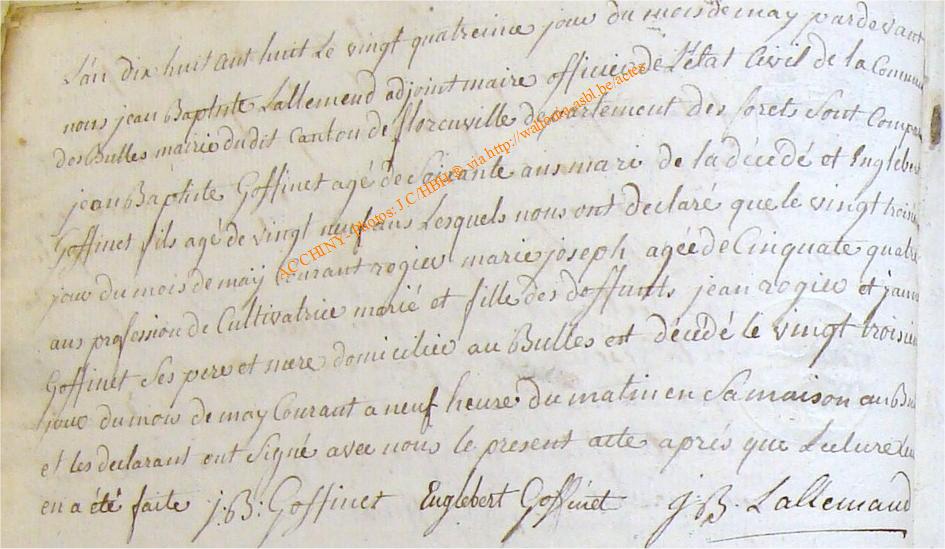 L'an dix huit cent huit Le vingt quatreime jour du mois de may pardevant
nous jean Baptiste Lallemend adjoint maire officier de L'état Civil de la Commun
des Bulles mairie dudit Canton de florenville departement des forets Sont Compar
jean Baptiste Goffinet agé de Soixante ans mari de la décédé et Englebert
Goffinet fils agé de vingt neuf ans Lesquels nous ont declaré que le vingt troisie
jour du mois de may Courant rogier marie joseph agée de Cinquate quatre
ans profession de Cultivatrice marié et fille des deffunts jean rogier et janne
Goffinet Ses pere et mere domiciliée au Bulles est décédé le vingt troisiem
jour du mois de may Courant a neuf heure du matin en Sa maison au Bul
et les declarant ont Signé avec nous le present acte aprés que Lecture Leur
en a été faite J:B: Goffinet Englebert Goffinet J.B. Lallemand
AC CHINY- Photos: J.C/HBH@ via http://wallonia-asbl.be/actes